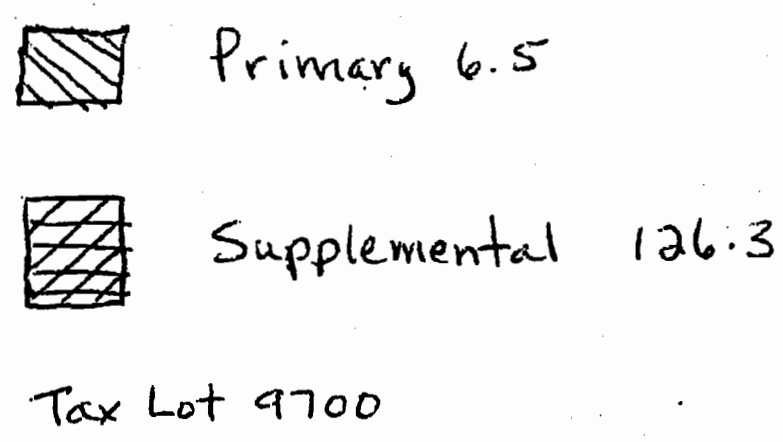 Primary 6.5
Supplemental 126.3
Tax Lot 9700